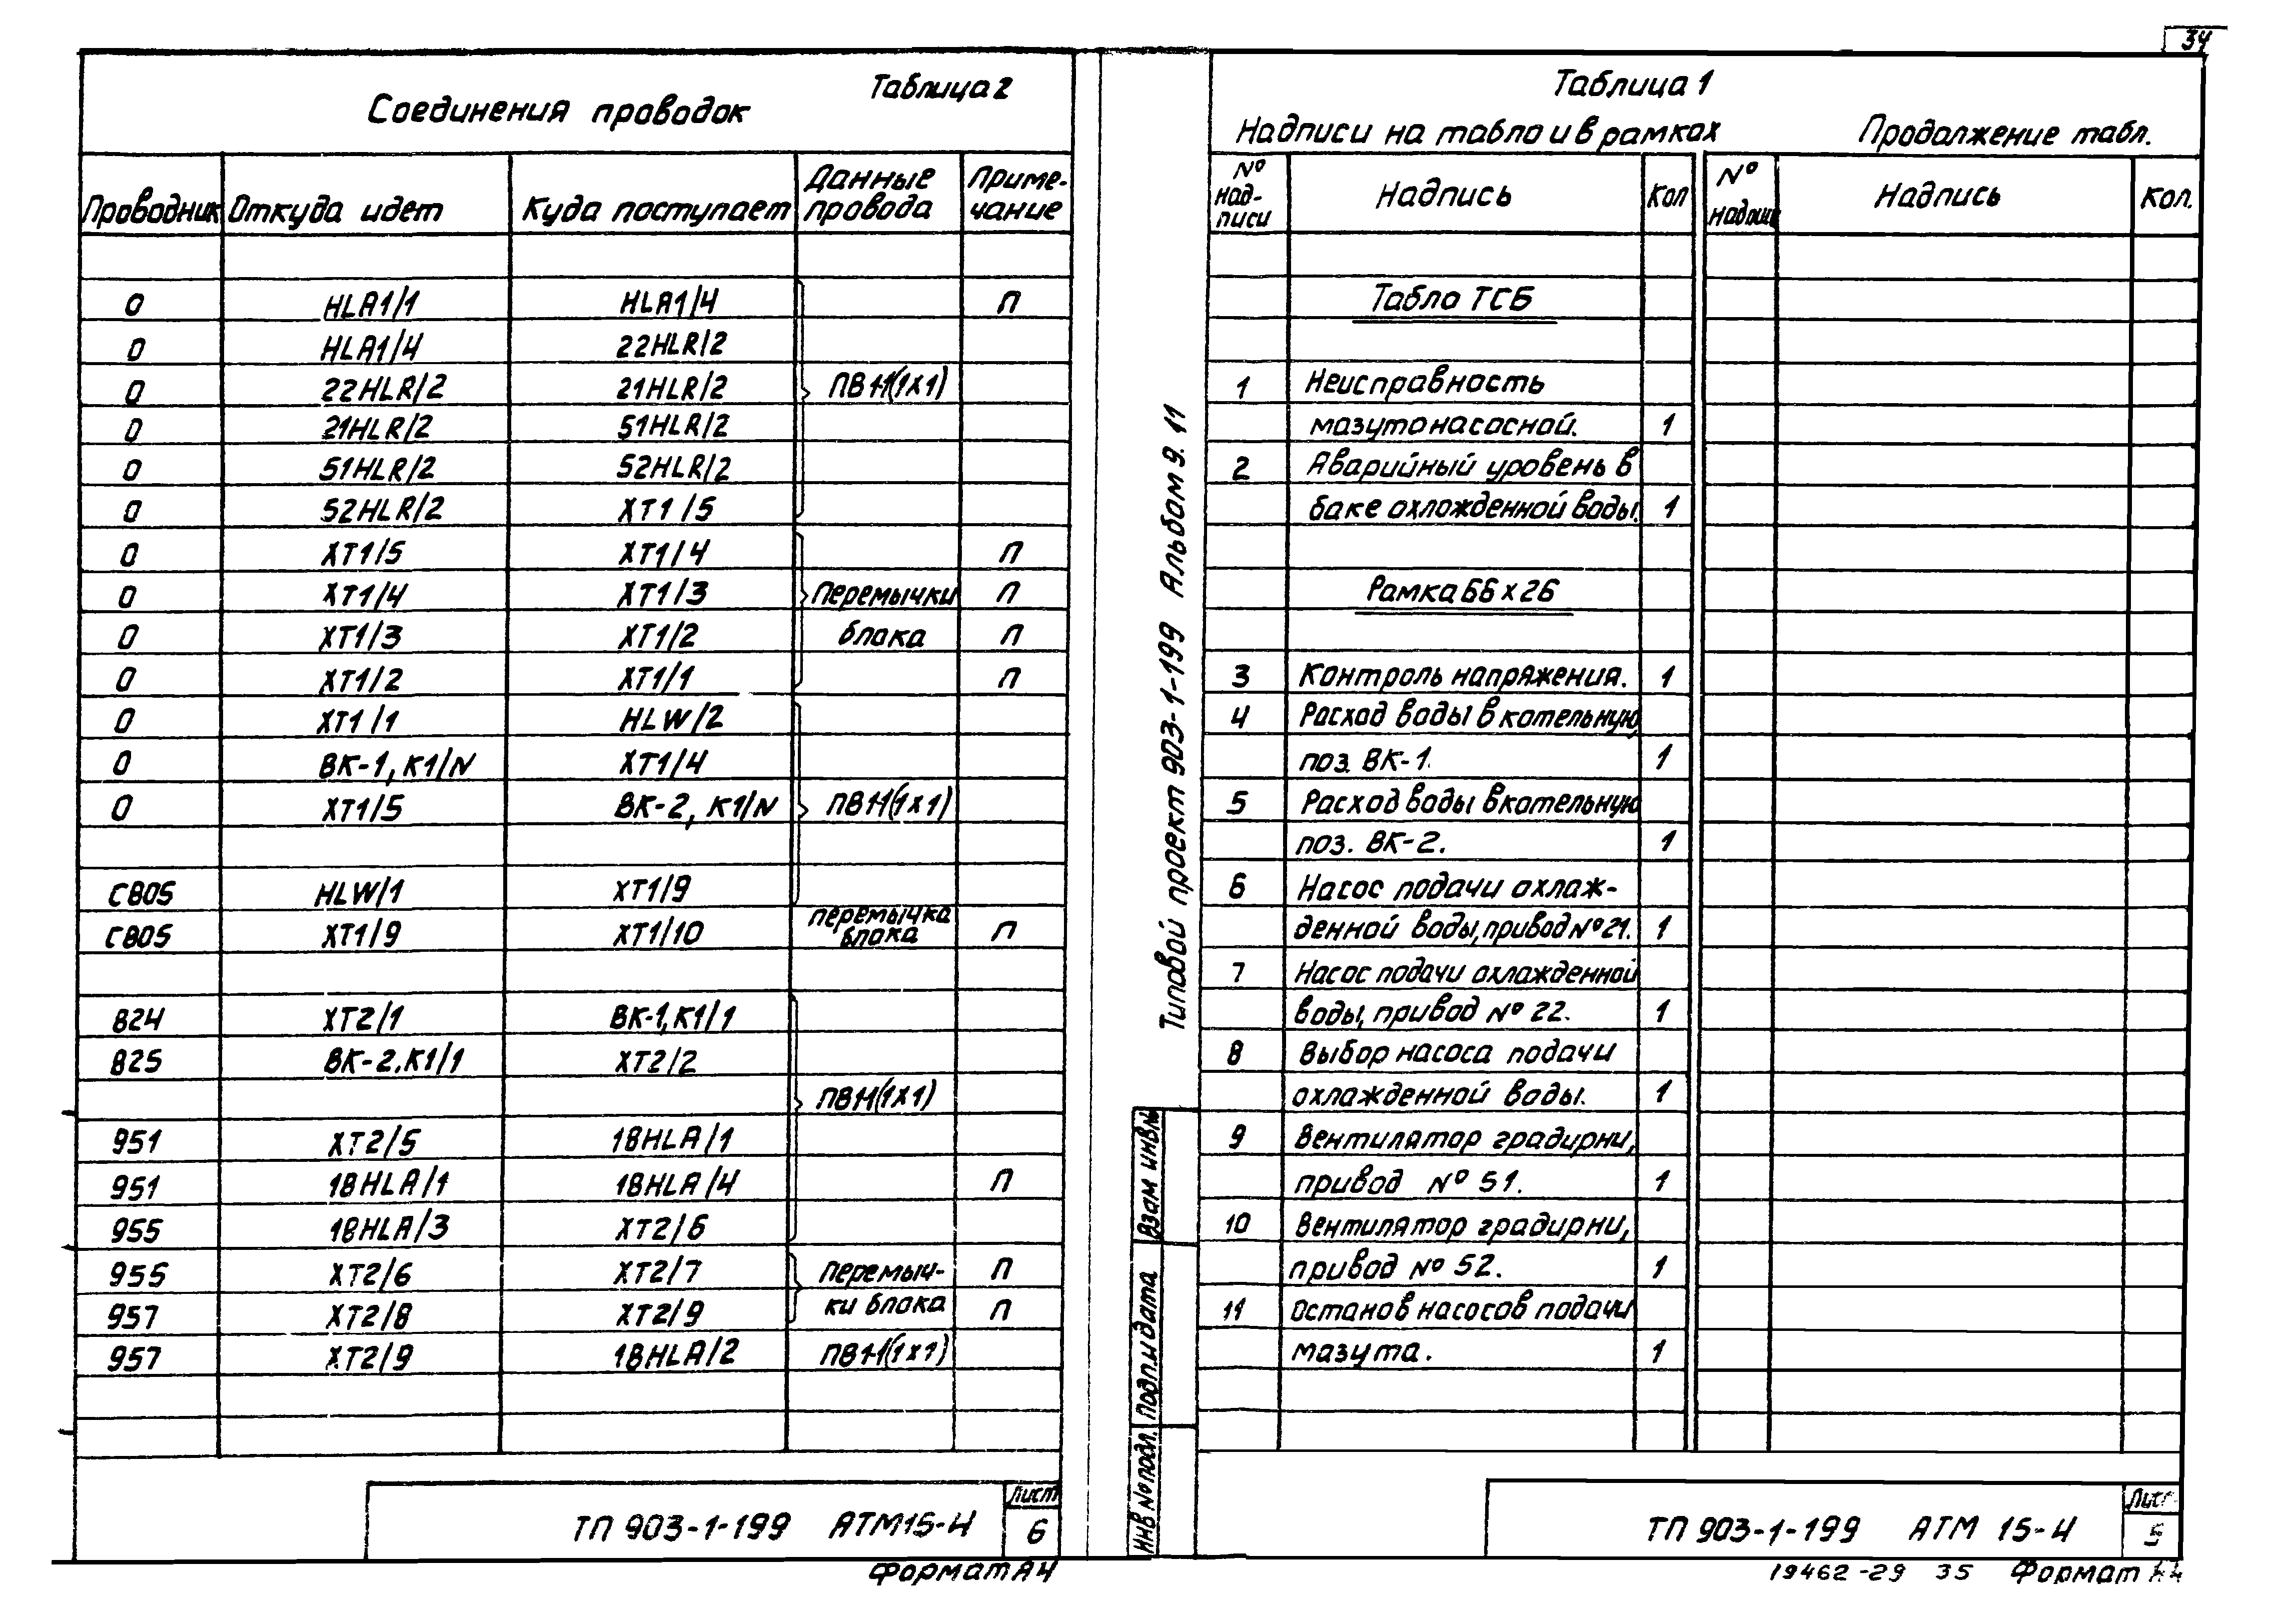 34
Таблица 2
Соединения проводок
Проводник Откуда идет Куда поступает Данные провода Приме-чание
0 HLA1/1 HLA1/4 П
0 HLA1/4 22HLR/2
0 22HLR/2 21HLR/2 ПВ1-1(1х1)
0 21HLR/2 51HLR/2
0 51HLR/2 52HLR/2
0 52HLR/2 XT1/5
0 XT1/5 XT1/4 П
0 XT1/4 XT1/3 Перемычки П
0 XT1/3 XT1/2 блока П
0 XT1/2 XT1/1 П
0 XT1/1 HLW/2
0 ВК-1, К1/N XT1/4
0 XT1/5 ВК-2, К1/N ПВ1-1(1х1)
С805 HLW/1 XT1/9
С805 XT1/9 XT1/10 перемычка блока П
824 XT2/1 ВК-1, К1/1
825 ВК-2. К1/1 XT2/2
ПВ1-1(1х1)
951 XT2/5 18HLA/1
951 18HLA/1 18HLA/4 П
955 18HLA/3 XT2/6
955 XT2/6 XT2/7 перемыч- П
957 XT2/8 XT2/9 ки блока П
957 XT2/9 18HLA/2 ПВ1-1(1х1)
ТП 903-1-199 АТМ15-4 Лист 6
Формат А4
Типовой проект 903-1-199 Альбом 9.11
Взам инв№
Подп. и дата
Инв № подл.
Таблица 1
Надписи на табло и в рамках Продолжение табл.
№ над-писи Надпись Кол № надписи Надпись Кол.
Табло ТСБ
1 Неисправность
мазутонасосной. 1
2 Аварийный уровень в
баке охлажденной воды. 1
Рамка 66х26
3 Контроль напряжения. 1
4 Расход воды в котельную,
поз. ВК-1. 1
5 Расход воды в котельную
поз. ВК-2. 1
6 Насос подачи охлаж-
денной воды, привод №21. 1
7 Насос подачи охлажденной
воды, привод № 22. 1
8 Выбор насоса подачи
охлажденной воды. 1
9 Вентилятор градирни,
привод № 51. 1
10 Вентилятор градирни,
привод № 52. 1
11 Останов насосов подачи
мазута. 1
ТП 903-1-199 АТМ 15-4 Лист 5
19462-29 35 Формат А4